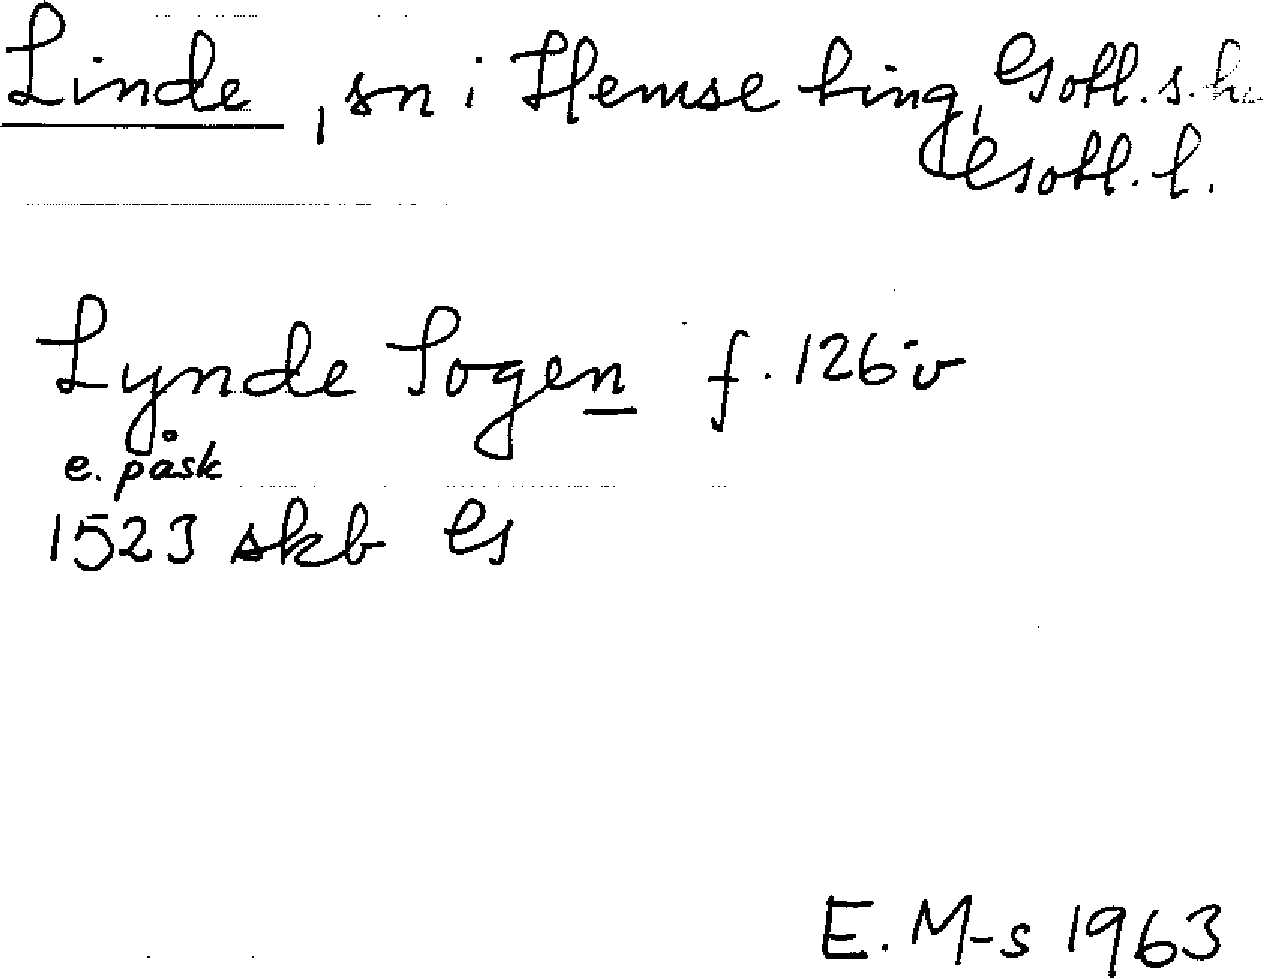 Linde, sn i Hemse ting, Gotl. s. h.
Gotl. l.
Lynde Sogen f. 126 v
e. påsk
1523 skb G
E. M-s 1963